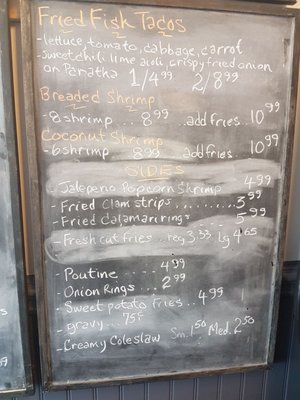 Fried Fish Tacos
-lettuce, tomato, cabbage, carrot
-sweet chili lime aioli, crispy fried onion
on Paratha 1/4.99 2/8.99
Breaded Shrimp
-8 shrimp.... 8.99 ..add fries..10.99
Coconut Shrimp
-6 shrimp 8.99 ..add fries..10.99
SIDES
-Jalepeno Popcorn Shrimp 4.99
-Fried Clam strips.........3.99
-Fried Calamari rings.... 5.99
-Fresh cut fries..reg 3.33 lg 4.65
-Poutine.....4.99
-Onion Rings....2.99
-Sweet potato fries..4.99
-gravy....75¢
-Creamy Coleslaw Sm.1.50 Med.2.50